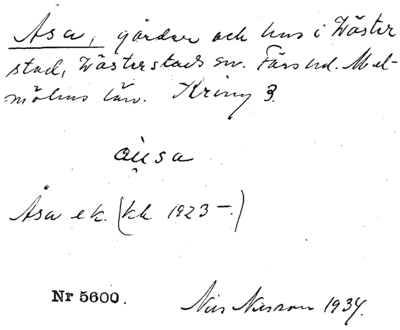 Åsa, gårdar och hus i Väster
stad, Västerstads sn. Färs hd. Mal-
möhus län. Kring 3.
åu̯sa
Åsa ek. (kk 1923 -.)
Nr 5600. Nils Nilsson 1934.